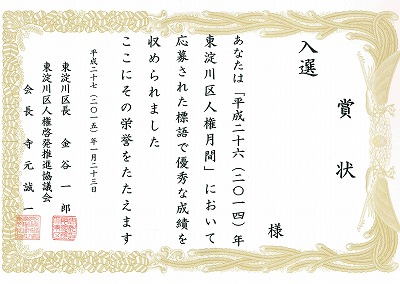 賞状
入選
様
あなたは「平成二十六(二〇一四)年
東淀川区人権月間」において
応募された標語で優秀な成績を
収められました
ここにその栄誉をたたえます
平成二十七(二〇一五)年一月二十三日
東淀川区長 金谷一郎
東淀川区人権啓発推進協議会
会長 寺元誠一